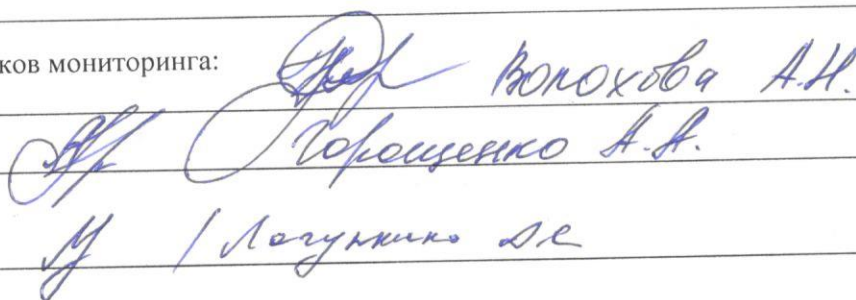 ков мониторинга: Волохова А.Н.
Горощенко А.А.
/ Лагункина Д.С